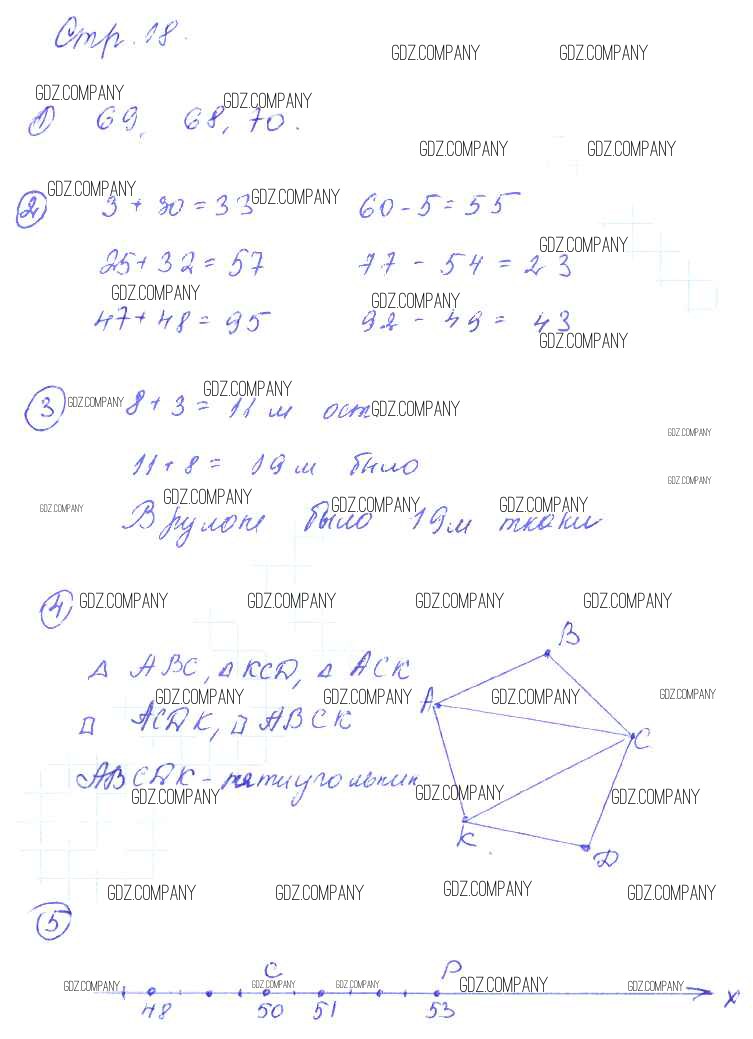 Стр. 18.
GDZ.COMPANY GDZ.COMPANY
GDZ.COMPANY GDZ.COMPANY
1 69, 68, 70.
GDZ.COMPANY GDZ.COMPANY
GDZ.COMPANY GDZ.COMPANY
2 3 + 30 = 33 60 - 5 = 55
GDZ.COMPANY
25 + 32 = 57 77 - 54 = 23
GDZ.COMPANY GDZ.COMPANY
47 + 48 = 95 92 - 49 = 43
GDZ.COMPANY
GDZ.COMPANY GDZ.COMPANY GDZ.COMPANY
3 8 + 3 = 11 м ост
GDZ.COMPANY
11 + 8 = 19 м было
GDZ.COMPANY
GDZ.COMPANY GDZ.COMPANY GDZ.COMPANY GDZ.COMPANY
В рулоне было 19 м ткани
4 GDZ.COMPANY GDZ.COMPANY GDZ.COMPANY GDZ.COMPANY
B
△ ABC, △ KCD, △ ACK
GDZ.COMPANY GDZ.COMPANY GDZ.COMPANY GDZ.COMPANY
A
□ ACDK, □ ABCK
C
ABCDK - пятиугольник
GDZ.COMPANY GDZ.COMPANY GDZ.COMPANY
K
D
GDZ.COMPANY GDZ.COMPANY GDZ.COMPANY GDZ.COMPANY
5
C P
GDZ.COMPANY GDZ.COMPANY GDZ.COMPANY GDZ.COMPANY GDZ.COMPANY
48 50 51 53 x